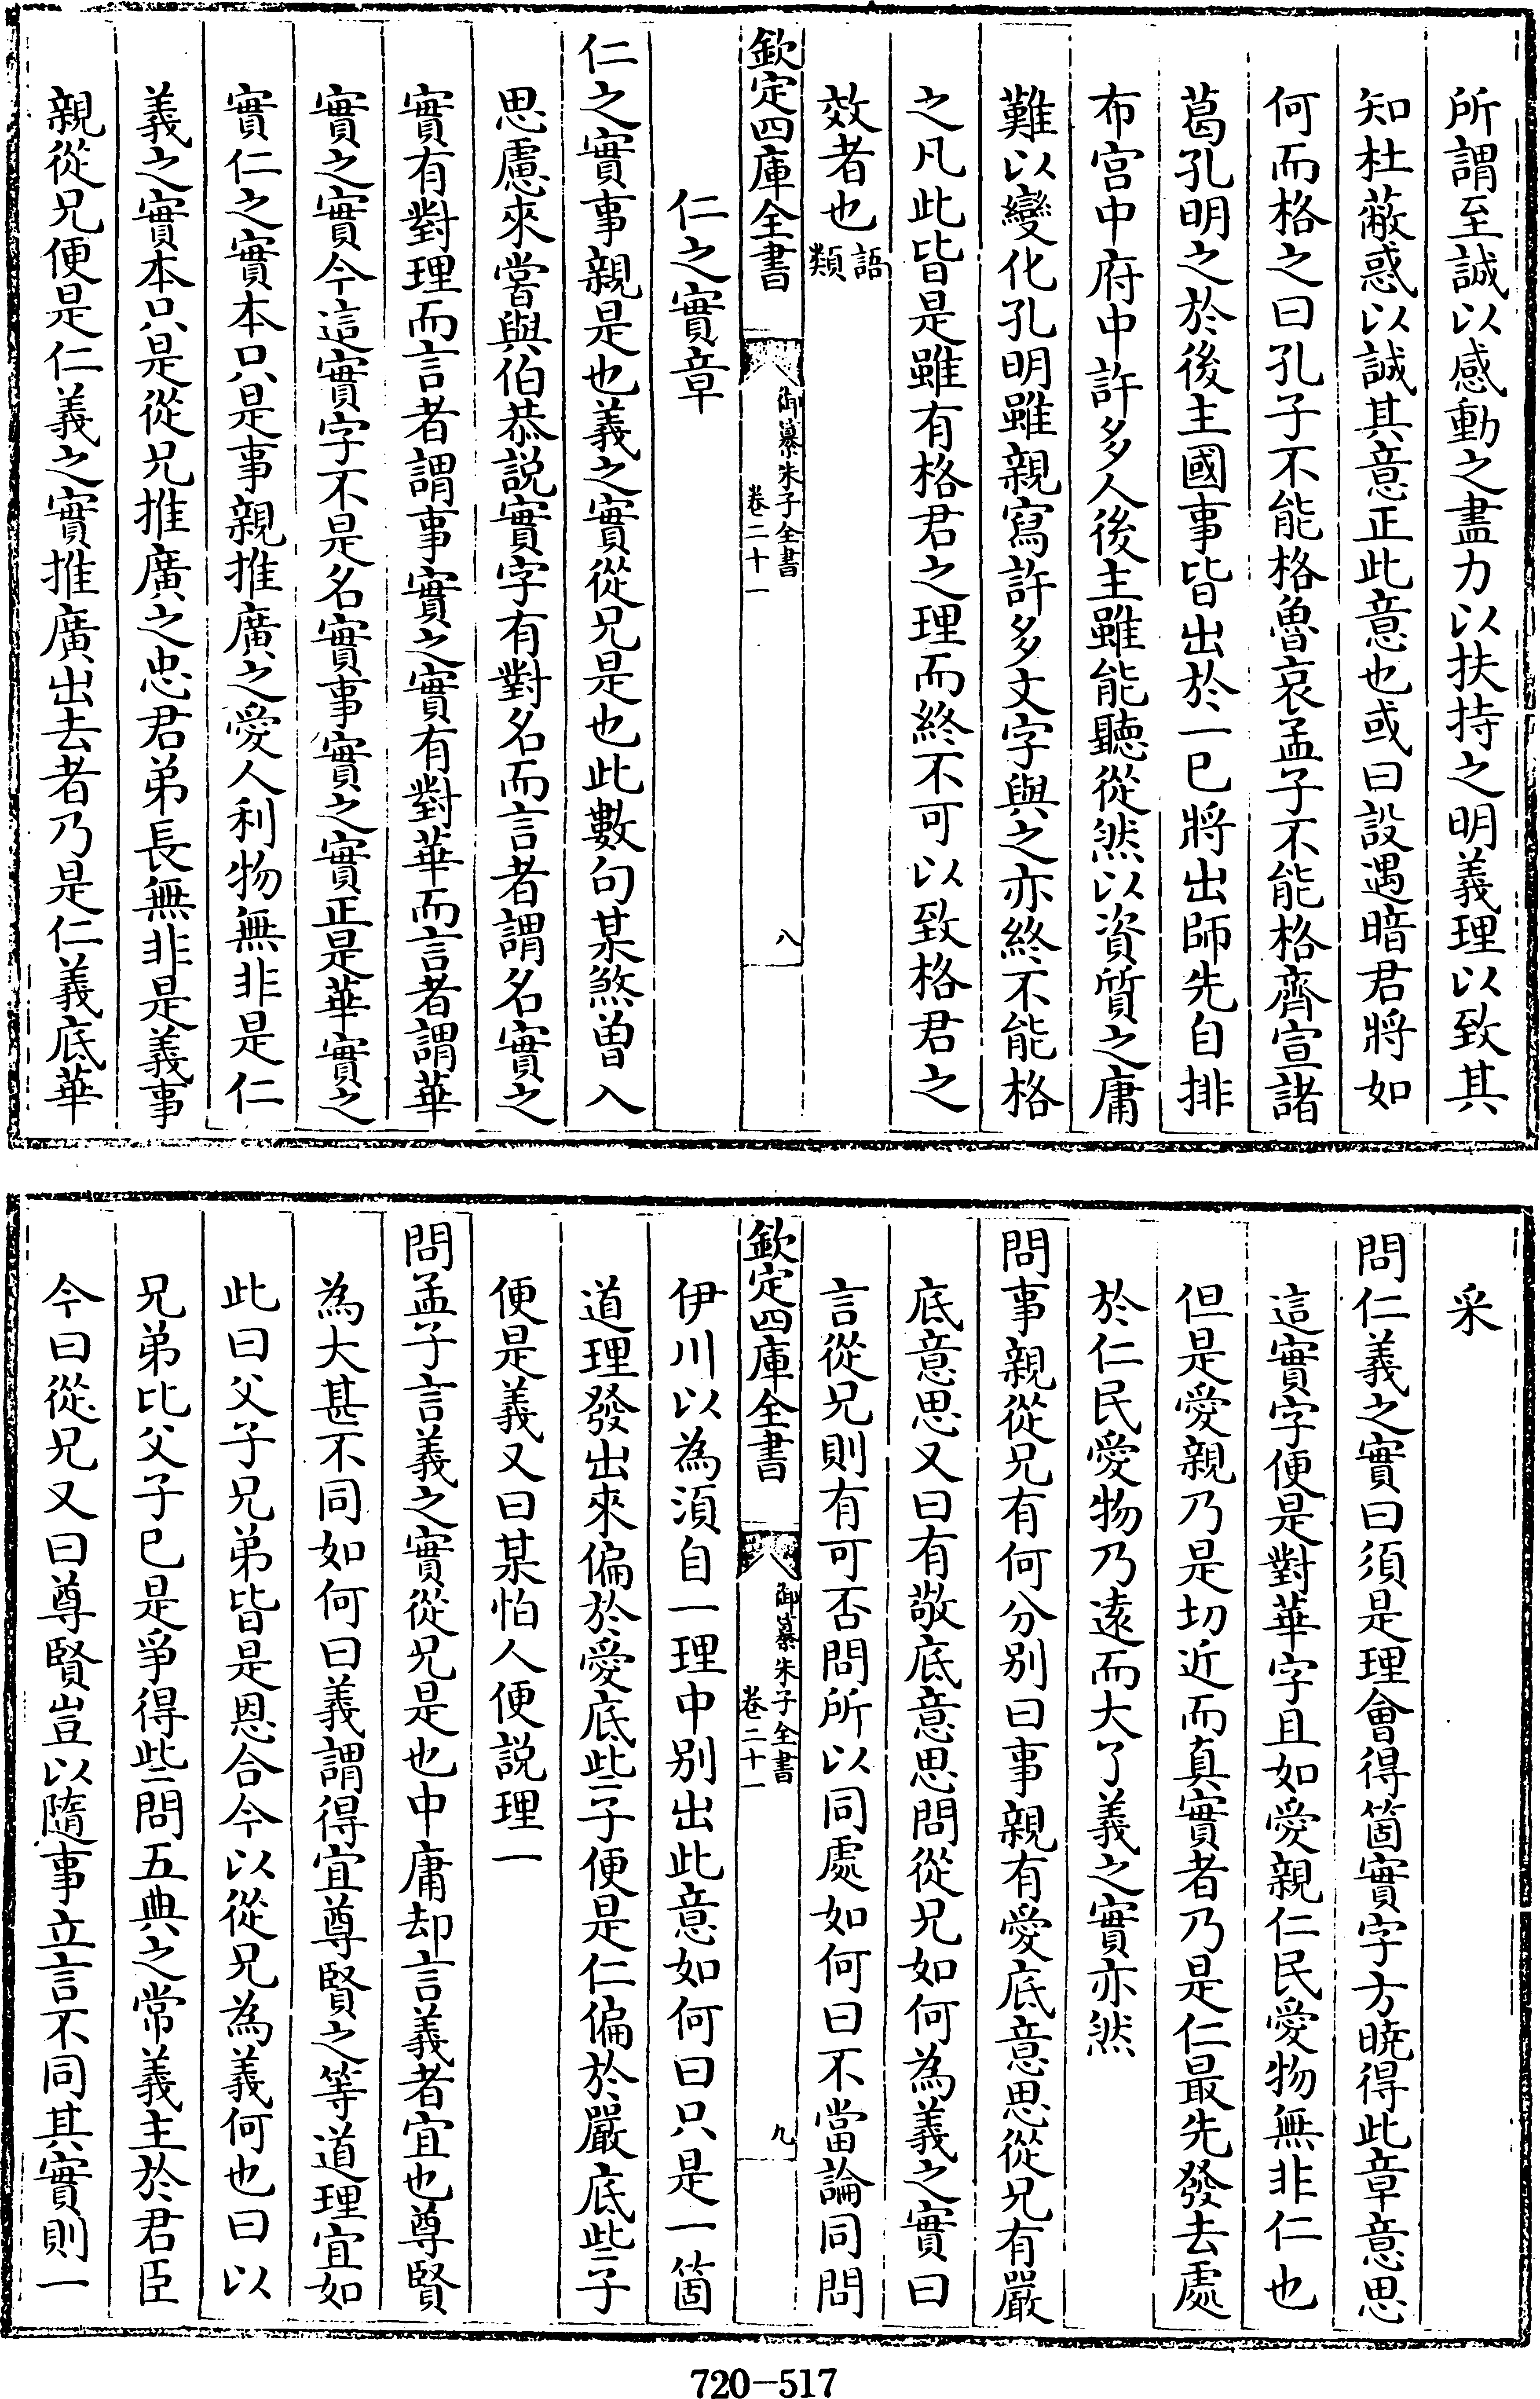 所謂至誠以感動之盡力以扶持之明義理以致其
知杜蔽惑以誠其意正此意也或曰設遇暗君將如
何而格之曰孔子不能格魯哀孟子不能格齊宣諸
葛孔明之於後主國事皆出於一已將出師先自排
布宫中府中許多人後主雖能聽從然以資質之庸
難以變化孔明雖親寫許多文字與之亦終不能格
之凡此皆是雖有格君之理而終不可以致格君之
效者也語類
欽定四庫全書 御纂朱子全書 卷二十一 八
仁之實章
仁之實事親是也義之實從兄是也此數句某煞曽入
思慮來嘗與伯恭説實字有對名而言者謂名實之
實有對理而言者謂事實之實有對華而言者謂華
實之實今這實字不是名實事實之實正是華實之
實仁之實本只是事親推廣之愛人利物無非是仁
義之實本只是從兄推廣之忠君弟長無非是義事
親從兄便是仁義之實推廣出去者乃是仁義底華
采
問仁義之實曰須是理會得箇實字方曉得此章意思
這實字便是對華字且如愛親仁民愛物無非仁也
但是愛親乃是切近而真實者乃是仁最先發去處
於仁民愛物乃遠而大了義之實亦然
問事親從兄有何分别曰事親有愛底意思從兄有嚴
底意思又曰有敬底意思問從兄如何為義之實曰
言從兄則有可否問所以同處如何曰不當論同問
欽定四庫全書 御纂朱子全書 卷二十一 九
伊川以為須自一理中别出此意如何曰只是一箇
道理發出來偏於愛底些子便是仁偏於嚴底些子
便是義又曰某怕人便説理一
問孟子言義之實從兄是也中庸却言義者宜也尊賢
為大甚不同如何曰義謂得宜尊賢之等道理宜如
此曰父子兄弟皆是恩合今以從兄為義何也曰以
兄弟比父子已是爭得些問五典之常義主於君臣
今曰從兄又曰尊賢豈以隨事立言不同其實則一
720-517